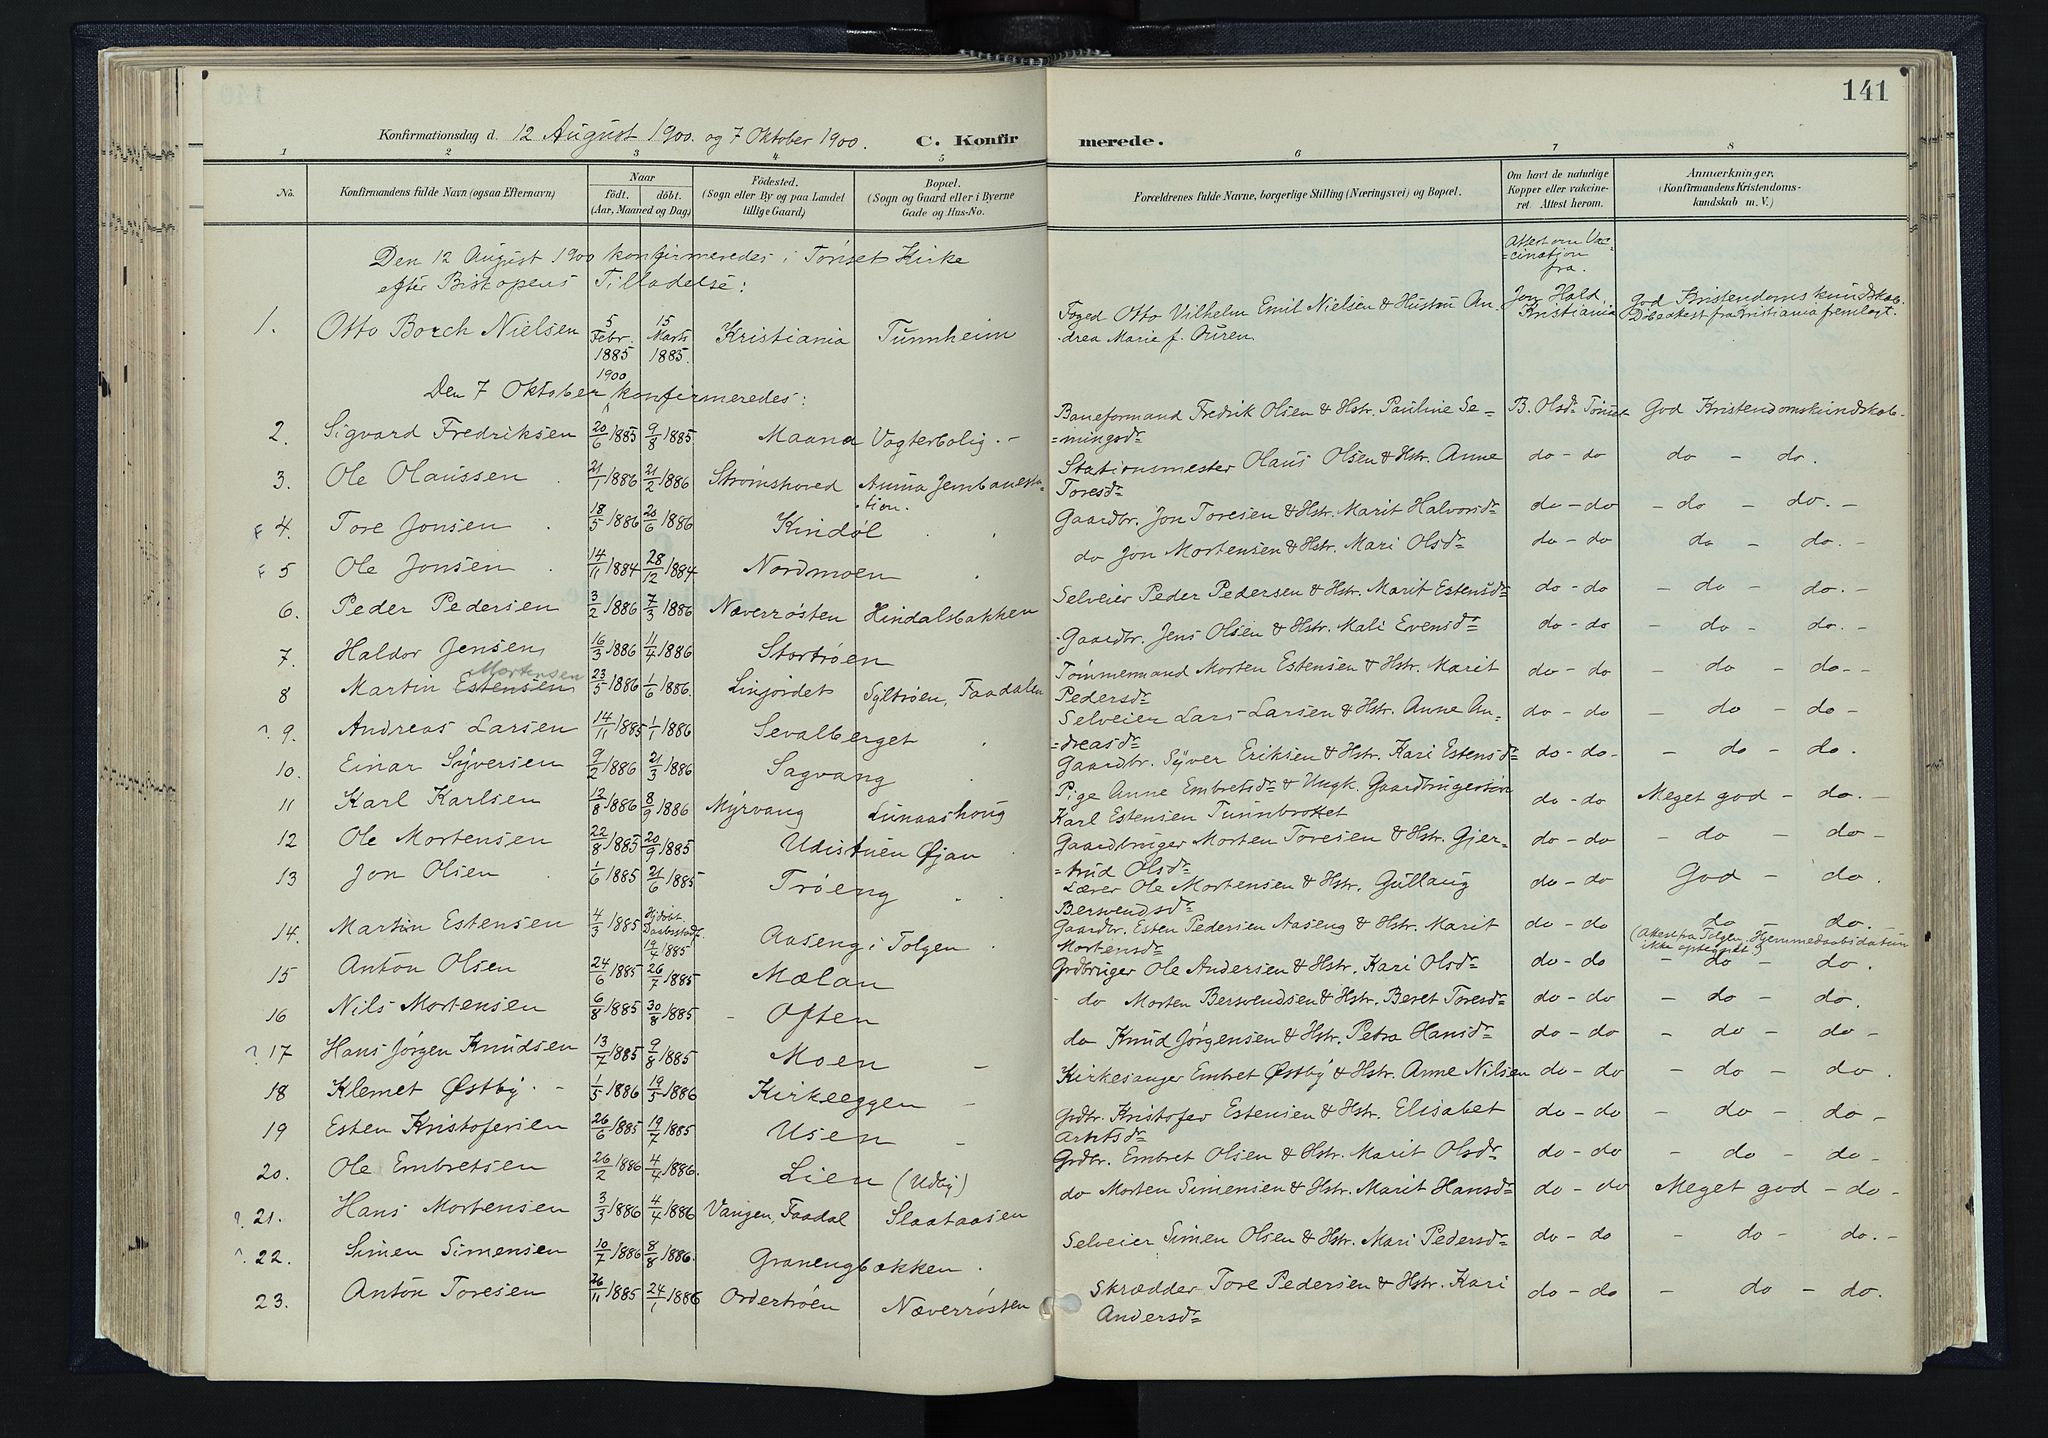 141
Konfirmationsdag d. 12 August 1900. og 7 Oktober 1900. C. Konfirmerede.
1 2 3 4 5 6 7 8
No. Konfirmandens fulde Navn (ogsaa Efternavn) Naar født. døbt. (Aar, Maaned og Dag) Fødested. (Sogn eller By og paa Landet tillige Gaard.) Bopæl. (Sogn og Gaard eller i Byerne Gade og Hus-No. Forældrenes fulde Navne, borgerlige Stilling (Næringsvei) og Bopæl. Om havt de naturlige Kopper eller vakcineret. Attest herom. Anmærkninger. (Konfirmandens Kristendomskundskab m. V.)
Den 12 August 1900 konfirmeredes i Tønset Kirke
efter Biskopens Tilladelse:
Attest om Vac=
=cination
fra.
1. Otto Borch Nielsen 5 Febr. 1885 15 Marts 1885. Kristiania Tunnheim Foged Otto Vilhelm Emil Nielsen & Hustru An-
drea Marie f. Auren. Jon Hald. Kristiania God Kristendomskundskab. Dåbsattest fra Kristiania fremlagt.
1900
Den 7 Oktober konfirmeredes:
2. Sigvard Fredriksen 20/6 1885 9/8 1885 Maana Vogterbolig. - Baneformand Fredrik Olsen & Hstr. Pauline Se=
=mingsdr B. Olsdr Tønset God Kristendomskundskab-
3. Ole Olaussen 21/1 1886 21/2 1886 Strømshoved Auma Jernbanesta-
tion. Stationsmester Olaus Olsen & Hstr. Anne
Toresdr do - do do - do.
F 4. Tore Jonsen 18/5 1886 20/6 1886 Kindøl Gaardbr. Jon Toresen & Hstr. Marit Halvorsdr do - do - do - do. -
F 5 Ole Jonsen 14/11 1884 28/12 1884 Nordmoen do Jon Mortensen & Hstr. Mari Olsdr do - do do - do. -
6. Peder Pedersen 3/2 1886 7/3 1886 Næverrøsten Hindalsbakken Selveier Peder Pedersen & Hstr. Marit Estensdr do - do - do - do. -
7. Haldor Jensen 16/3 1886 11/4 1886 Stortrøen Gaardbr. Jens Olsen & Hstr. Mali Evensdr do - do - do - do. -
Mortensen
8 Martin Estensen 23/5 1886 1/6 1886. Linjordet Syltrøen, Faadalen Tømmermand Morten Estensen & Hstr. Marit
Pedersdr do - do - do - do - -
9. Andreas Larsen 14/11 1885 1/1 1886 Sevalberget Selveier Lars Larsen & Hstr. Anne An-
=dreasdr do - do - do - do -
10. Einar Syversen 9/2 1886 21/3 1886 Sagvang Gaardbr. Syver Eriksen & Hstr. Kari Estensdr do - do - - do - do.
11 Karl Karlsen 12/8 1886 8/9 1886 Myrvang Lunaashoug Pige Anne Embretsdr & Ungk. Gaardbrugersøn
Karl Estensen Tunnbrottet do - do Meget god - do. -
12 Ole Mortensen 22/8 1885 20/9 1885 Udistuen Øjan Gaardbruger Morten Toresen & Hstr. Gjer-
=trud Olsdr do - do - do - do -
13 Jon Olsen 1/6 1885 21/6 1885 Trøeng Lærer Ole Mortensen & Hstr. Gullaug
Bersvendsdr do - do God - do.
14. Martin Estensen 4/3 1885 Hjdøbt. Daabsstadf. 19/4 1885 Aaseng i Tolgen Gaardbr. Esten Pedersen Aaseng & Hstr. Marit
Mortensdr do - do do do. -
(Attest fra Tolgen, Hjemmedaabsdatum
ikke opteguet.)
15 Anton Olsen 24/6 1885 26/7 1885 Mælan Grdbruger Ole Andersen & Hstr. Kari Olsdr do - do - do - do.
16 Nils Mortensen 6/8 1885 30/8 1885 - Often do Morten Bersvendsen & Hstr. Beret Toresdr do - do - do - do.
17 Hans Jørgen Knudsen 13/7 1885 9/8 1885 Moen - do Knud Jørgensen & Hstr. Petra Hansdr do - do - do - do -
18 Klemet Østby. - 1/5 1886 19/5 1886 Kirkeeggen - Kirkesanger Embret Østby & Hstr. Anne Nilsen do - do - do - do.
19 Esten Kristofersen 26/6 1885 19/7 1885 Usen - Grdbr. Kristofer Estensen & Hstr. Elisabet
do - do - do - do -
20. Ole Embretsen 26/2 1886 4/4 1886. Lien (Udby) Grdbr. Embret Olsen & Hstr. Marit Olsdr do - do - do - do -
21. Hans Mortensen 3/3 1886 4/4 1886 Vangen, Faadal Slaataasen do Morten Simensen & Hstr. Marit Hansdr do - do Meget god - do -
22. Simen Simensen 10/7 1886 8/8 1886. Granengbækken. Selveier Simen Olsen & Hstr. Mari Pedersdr do - do - do - do. -
23. Anton Toresen 26/11 1885 24/1 1886 Ordertrøen Næverrøsten Skrædder Tore Pedersen & Hstr. Kari
Andersdr do - do - do - do.